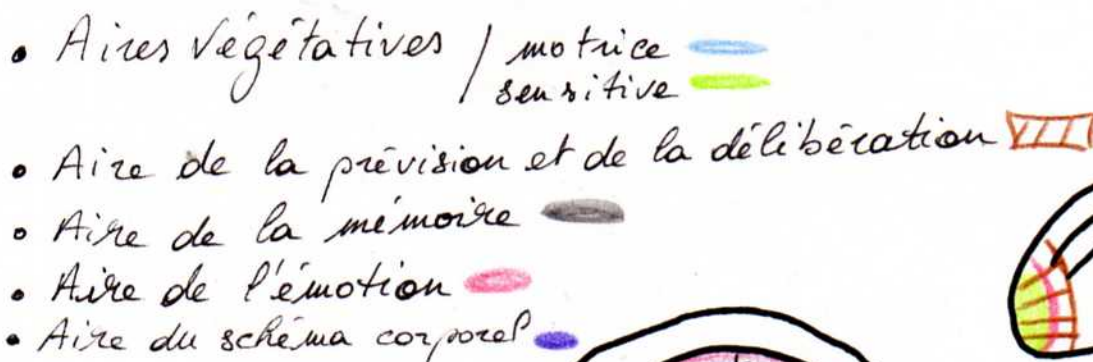 • Aires Végétatives / motrice
sensitive
• Aire de la prévision et de la délibération
• Aire de la mémoire
• Aire de l'émotion
• Aire du schéma corporel